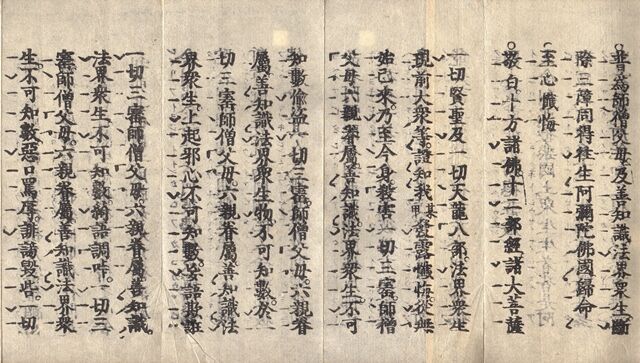 普爲師僧父母及善知識法界衆生斷
除三障同得往生阿彌陀佛國歸命
至心懺悔
敬白十方諸佛十二部經諸大菩薩
一切賢聖及一切天龍八部法界衆生
現前大衆等證知我某甲發露懺悔從無
始已來乃至今身殺害一切三寳師僧
父母六親眷屬善知識法界衆生不可
知數偸盗一切三寳師僧父母六親眷
屬善知識法界衆生物不可知數於一
切三寳師僧父母六親眷屬善知識法
界衆生上起邪心不可知數妄語欺誑
一切三寳師僧父母六親眷屬善知識
法界衆生不可知數綺語調哢一切三
寳師僧父母六親眷屬善知識法界衆
生不可知數惡口罵辱誹謗毀呰一切